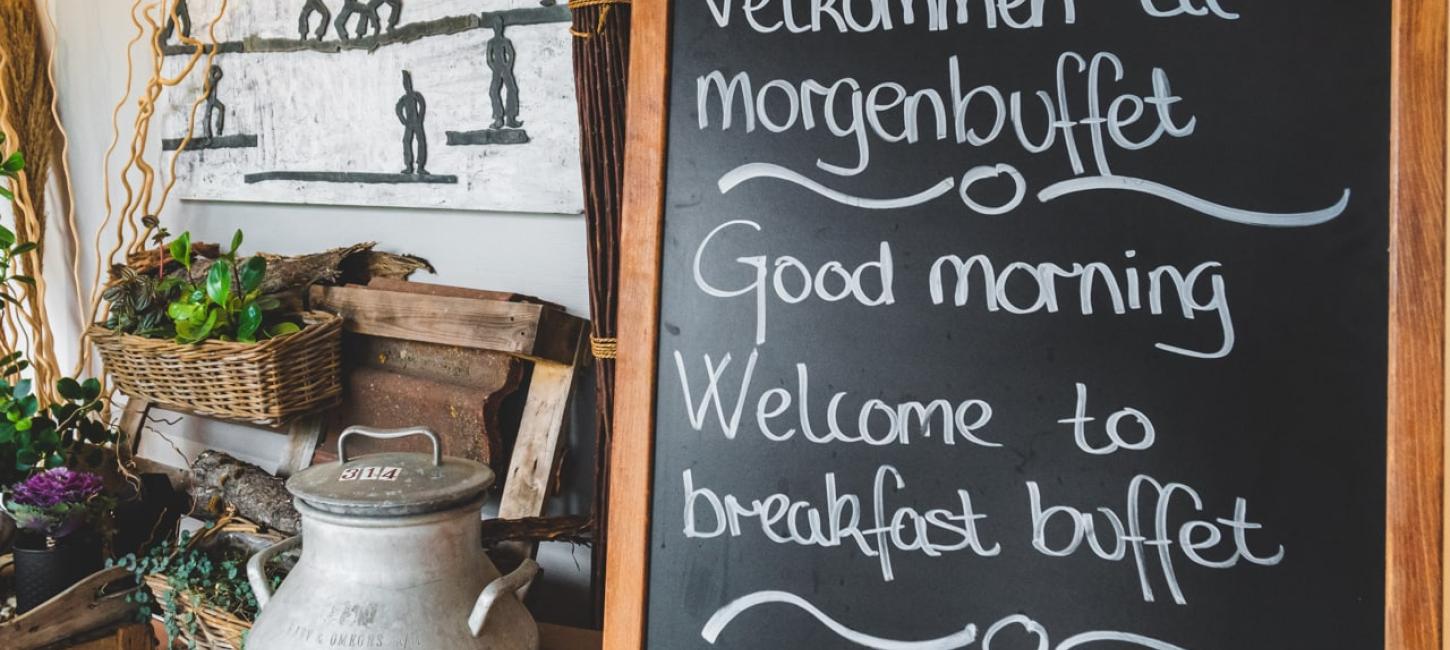 Velkommen til
morgenbuffet
Good morning
Welcome to
breakfast buffet
314
& OMEGNS